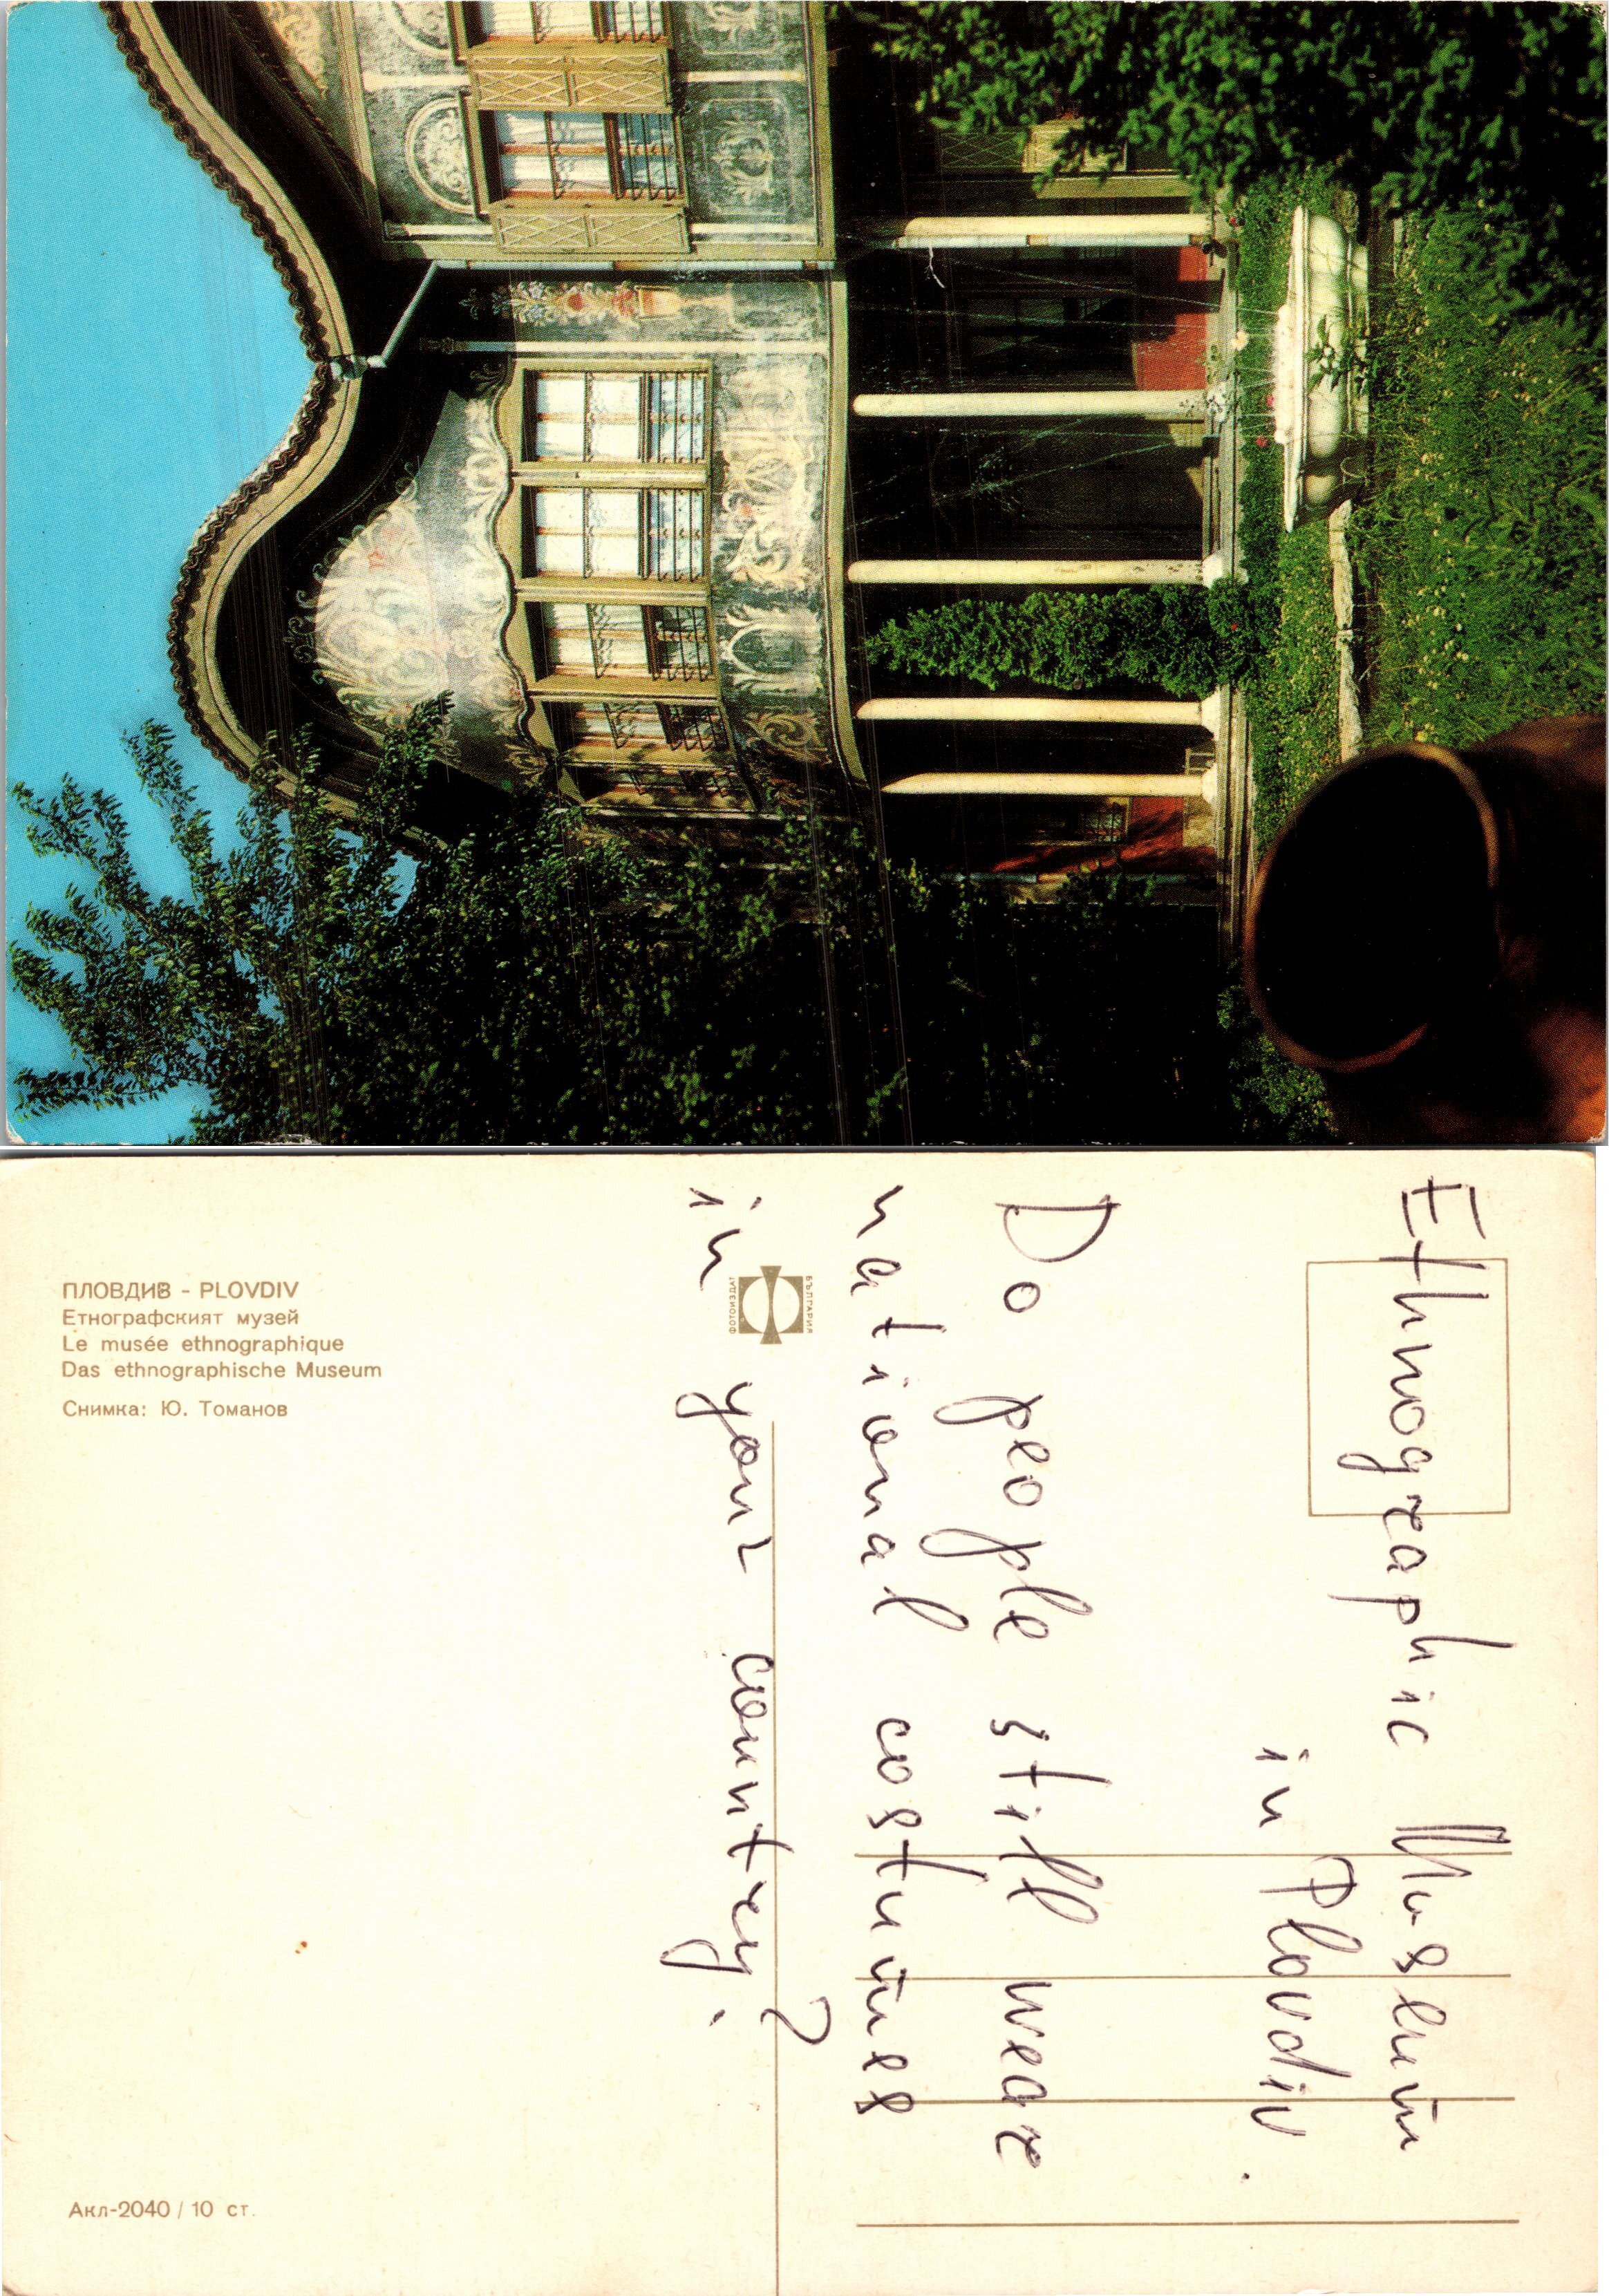 ПЛОВДИВ - PLOVDIV
Етнографският музей
Le musée ethnographique
Das ethnographische Museum
Снимка: Ю. Томанов
ФОТОИЗДАТ
БЪЛГАРИЯ
Акл-2040 / 10 ст.
Ethnographic Museum
in Plovdiv.
Do people still wear
national costumes
in your country?